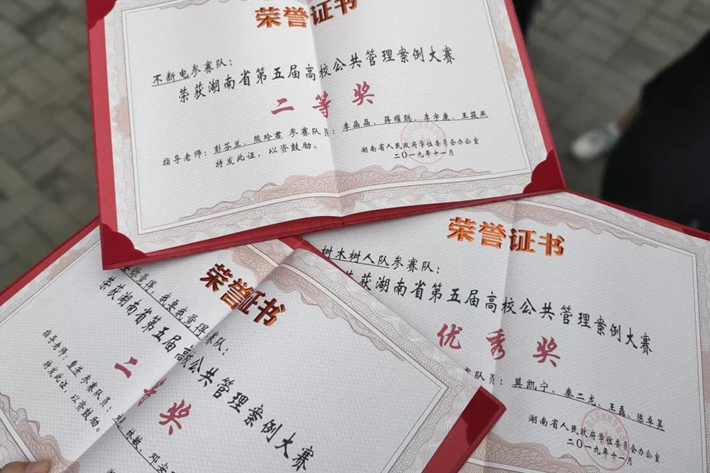 荣誉证书
不断电参赛队：
荣获湖南省第五届高校公共管理案例大赛
二等奖
指导老师：彭芬兰、陈岭君 参赛队员：李晶晶、蒋耀刚、李宇廉、王筱燕
特发此证，以资鼓励。
湖南省人民政府学位委员会办公室
二〇一九年十一月
荣誉证书
我要我管得参赛队：
荣获湖南省第五届高校公共管理案例大赛
二等奖
指导老师： 参赛队员：
特发此证，以资鼓励。
荣誉证书
树木树人队参赛队：
荣获湖南省第五届高校公共管理案例大赛
优秀奖
队员：莫凯宁、秦二龙、王磊、陈卓昊
湖南省人民政府学位委员会办公室
二〇一九年十一月